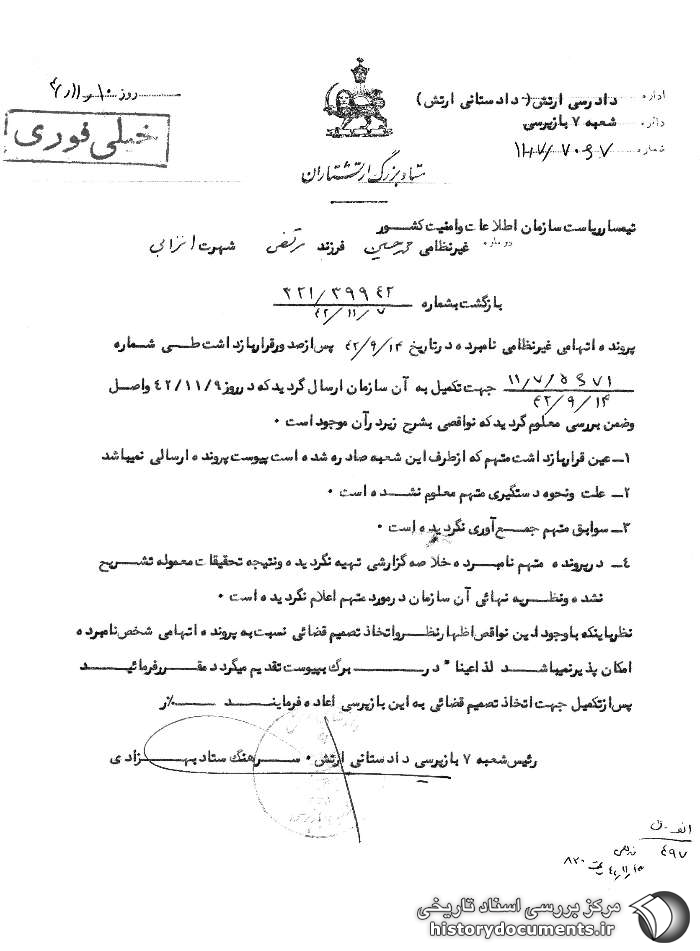 اداره دادرسی ارتش (دادستانی ارتش)
دائره شعبه ۷ بازپرسی
شماره ۱۱/۷/۷۰۶۷
روز ۱۰/۱۱/۴۲
خیلی فوری
ستاد بزرگ ارتشتاران
تیمسار ریاست سازمان اطلاعات و امنیت کشور
درباره غیرنظامی محمدحسین فرزند مرتضی شهرت انزابی
بازگشت بشماره ۳۲۱/۳۹۹۴۲
۴۲/۱۱/۷
پرونده اتهامی غیرنظامی نامبرده در تاریخ ۴۲/۹/۱۴ پس از صدور قرار بازداشت طی شماره
۱۱/۷/۵۶۷۱ جهت تکمیل به آن سازمان ارسال گردید که در روز ۴۲/۱۱/۹ واصل
۴۲/۹/۱۴
وضمن بررسی معلوم گردید که نواقصی بشرح زیر در آن موجود است ۰
۱ــ عین قرار بازداشت متهم که از طرف این شعبه صادر شده است پیوست پرونده ارسالی نمیباشد
۲ــ علت ونحوه دستگیری متهم معلوم نشده است ۰
۳ــ سوابق متهم جمع آوری نگردیده است ۰
۴ــ در پرونده متهم نامبرده خلاصه گزارشی تهیه نگردیده ونتیجه تحقیقات معموله تشریح
نشده ونظریه نهائی آن سازمان در مورد متهم اعلام نگردیده است ۰
نظر باینکه با وجود این نواقص اظهار نظر واتخاذ تصمیم قضائی نسبت به پرونده اتهامی شخص نامبرده
امکان پذیر نمیباشد لذا عینا" در برگ بپیوست تقدیم میگردد مقرر فرمائید
پس از تکمیل جهت اتخاذ تصمیم قضائی به این بازپرسی اعاده فرمایند ٪ر
رئیس شعبه ۷ بازپرسی دادستانی ارتش ۰ سرهنگ ستاد بهزادی
الف ق
۴۹۷
۸۲۰
مرکز بررسی اسناد تاریخی
historydocuments.ir